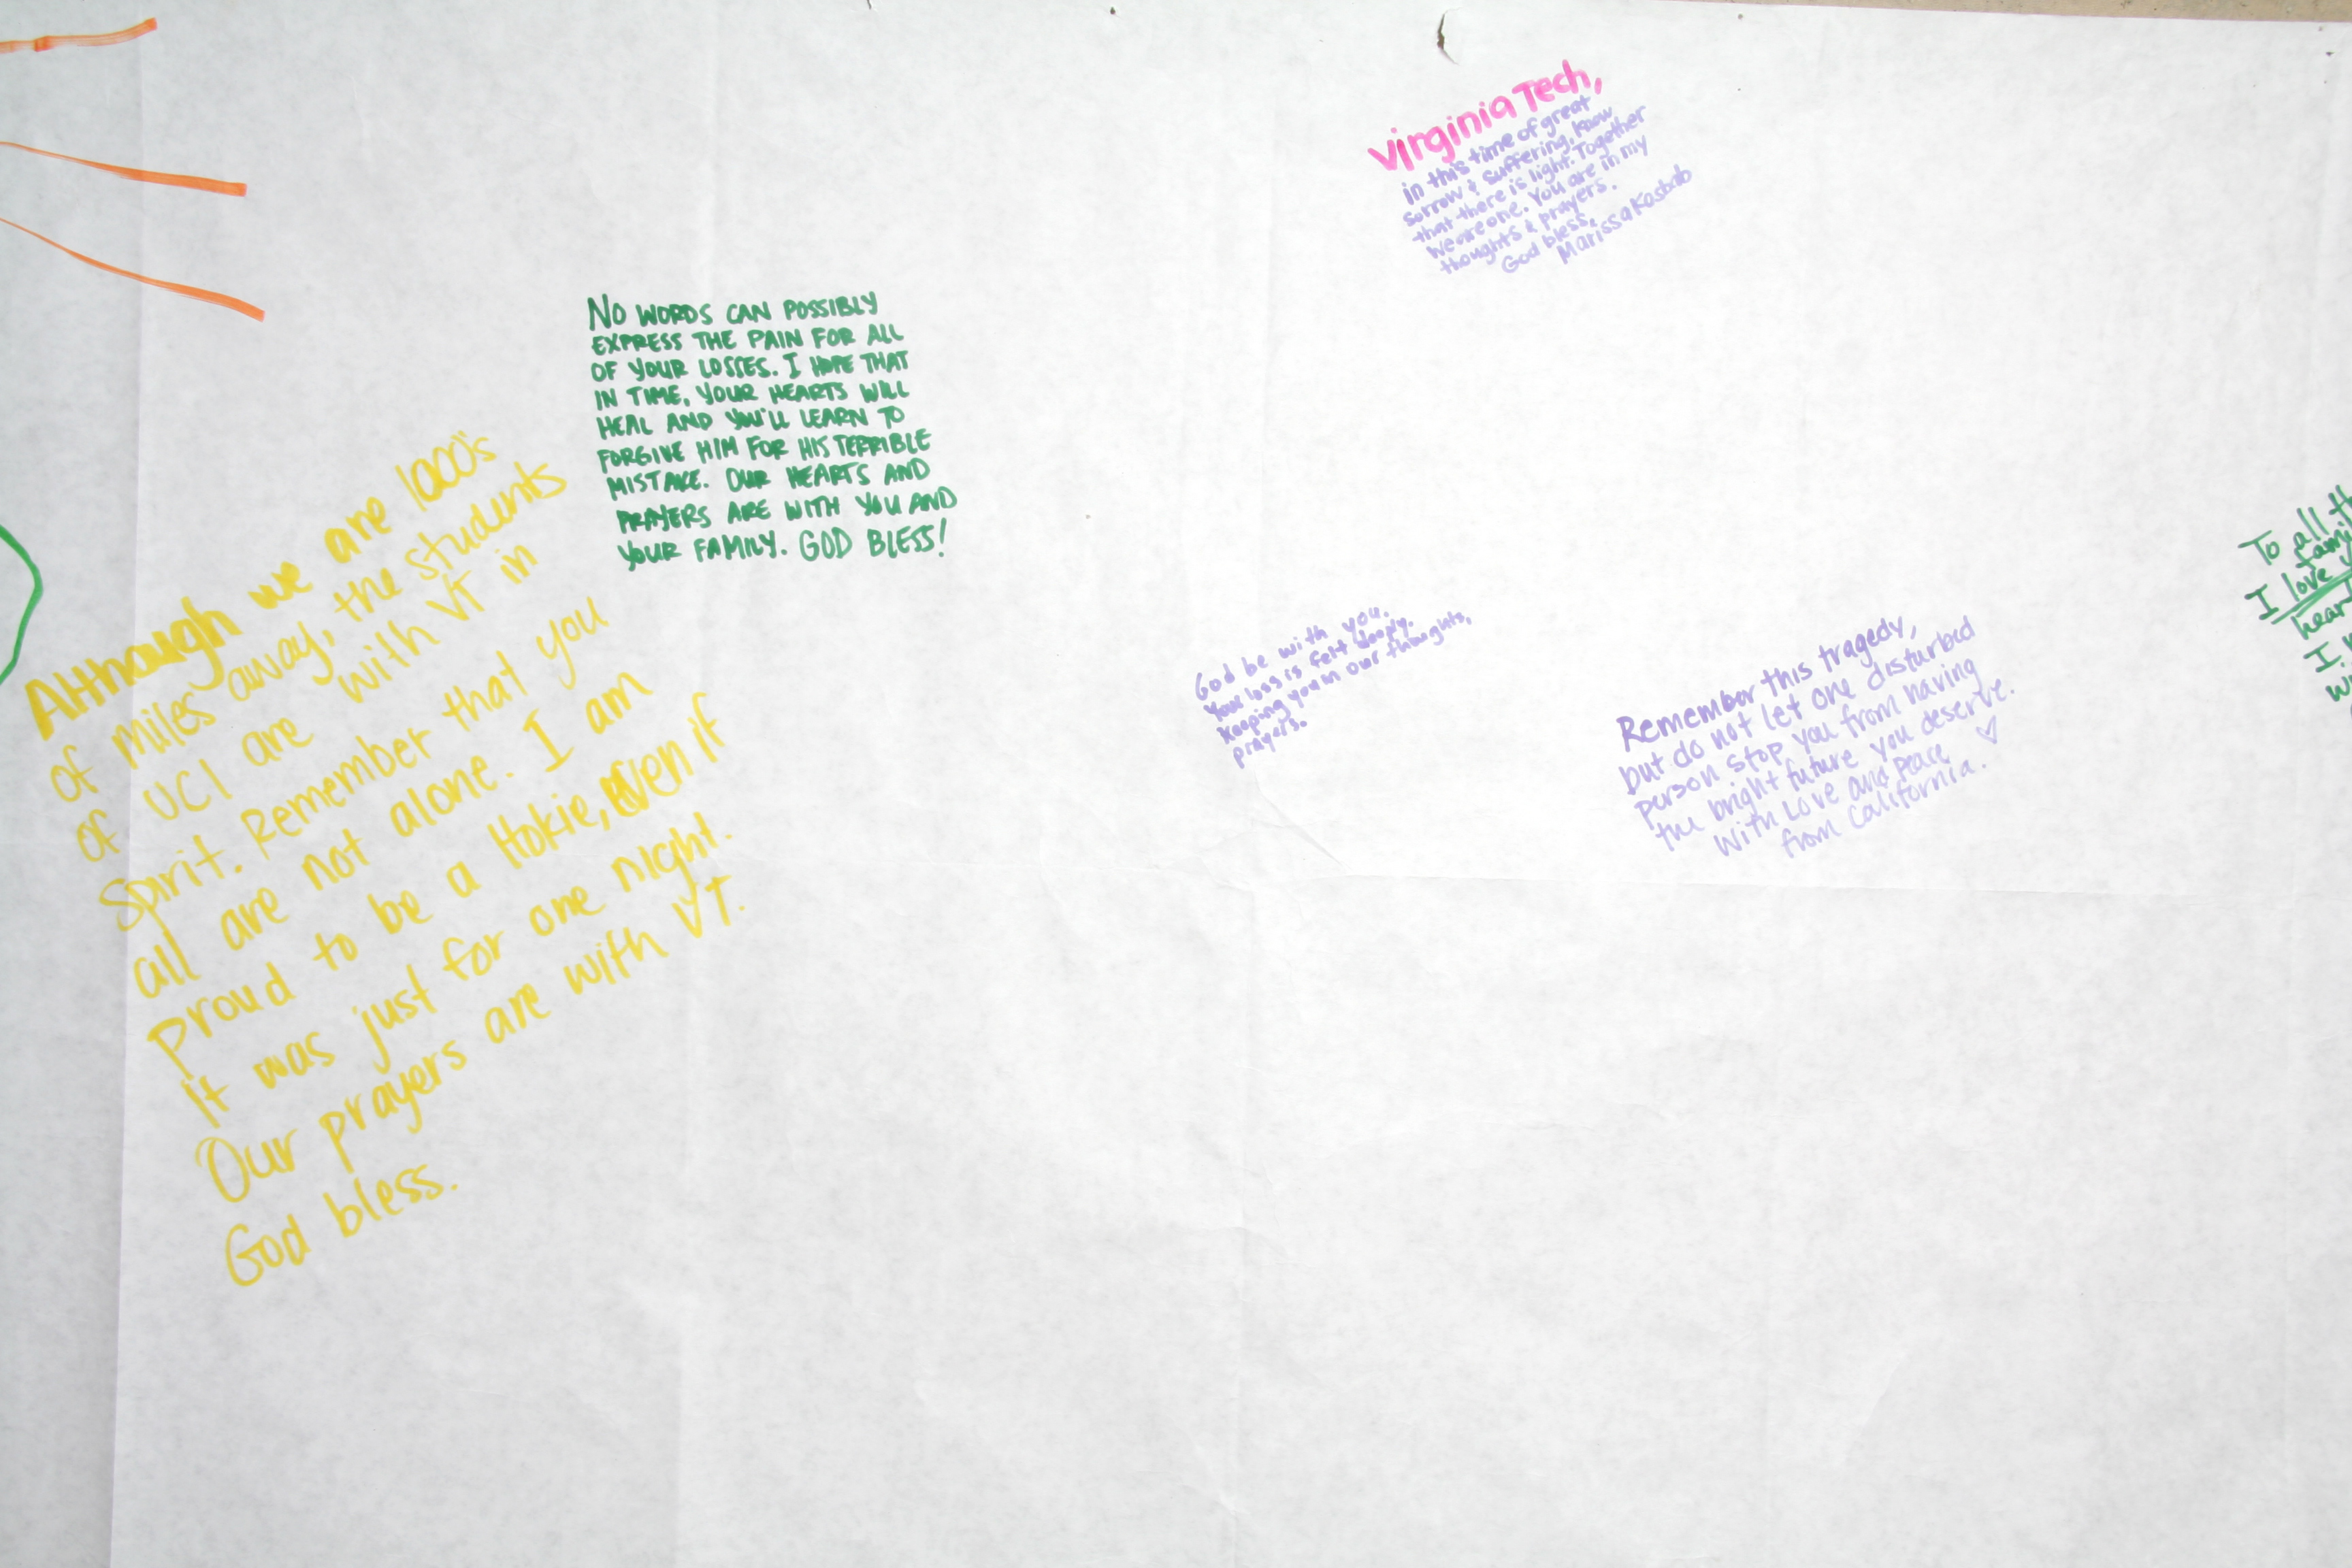 Although we are 1000's
of miles away, the students
of UCI are with VT in
spirit. Remember that you
all are not alone. I am
proud to be a Hokie, even if
it was just for one night.
Our prayers are with VT.
God bless.
NO WORDS CAN POSSIBLY
EXPRESS THE PAIN FOR ALL
OF YOUR LOSSES. I HOPE THAT
IN TIME, YOUR HEARTS WILL
HEAL AND YOU'LL LEARN TO
FORGIVE HIM FOR HIS TERRIBLE
MISTAKE. OUR HEARTS AND
PRAYERS ARE WITH YOU AND
YOUR FAMILY. GOD BLESS!
Virginia Tech,
in this time of great
sorrow & suffering, know
that there is light. Together
we are one. You are in my
thoughts & prayers.
God bless,
Marissa Kasbab
God be with you.
Your loss is felt deeply.
Keeping you in our thoughts,
prayers.
Remember this tragedy,
but do not let one disturbed
person stop you from having
the bright future you deserve.
With Love and Peace
from California. ♡
To all
I love
I